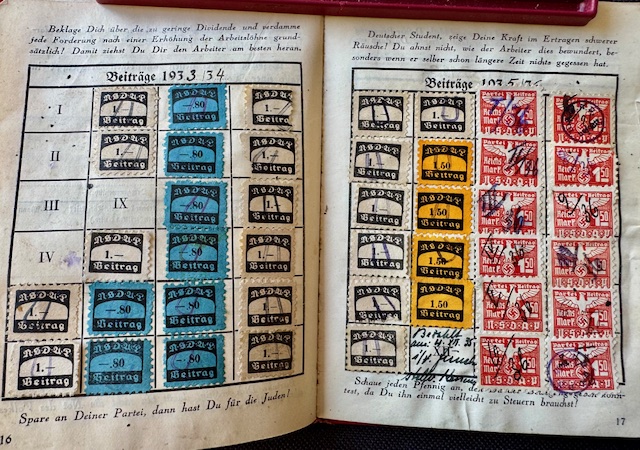 Beklage Dich über die zu geringe Dividende und verdamme
jede Forderung nach einer Erhöhung der Arbeitslöhne grund-
sätzlich! Damit ziehst Du Dir den Arbeiter am besten heran.
Beiträge 1933/34
I
NSDAP 1.— Beitrag
NSDAP —.80 Beitrag
NSDAP 1.— Beitrag
II
NSDAP 1.— Beitrag
NSDAP —.80 Beitrag
NSDAP 1.— Beitrag
III
IX
NSDAP —.80 Beitrag
NSDAP 1.— Beitrag
IV
NSDAP 1.— Beitrag
NSDAP —.80 Beitrag
NSDAP 1.— Beitrag
NSDAP 1.— Beitrag
NSDAP —.80 Beitrag
NSDAP —.80 Beitrag
NSDAP 1.— Beitrag
NSDAP 1.— Beitrag
NSDAP —.80 Beitrag
NSDAP —.80 Beitrag
NSDAP 1.— Beitrag
Spare an Deiner Partei, dann hast Du für die Juden!
16
Deutscher Student, zeige Deine Kraft im Ertragen schwerer
Räusche! Du ahnst nicht, wie der Arbeiter dies bewundert, be-
sonders wenn er selber schon längere Zeit nichts gegessen hat.
Beiträge
NSDAP 1.— Beitrag
NSDAP Beitrag
Partei Beitrag Reichs Mark 1 50 N·S·D·A·P
Partei Beitrag
NSDAP Beitrag
NSDAP 1.50 Beitrag
Partei Beitrag Reichs Mark 1 50 N·S·D·A·P
Partei Beitrag Reichs Mark 1 50 N·S·D·A·P
NSDAP Beitrag
NSDAP 1.50 Beitrag
Partei Beitrag Reichs Mark 1 50 N·S·D·A·P
Partei Beitrag Reichs Mark 1 50 N·S·D·A·P
NSDAP Beitrag
NSDAP 1.50 Beitrag
Partei Beitrag Reichs Mark 1 50 N·S·D·A·P
Partei Beitrag Reichs Mark 1 50 N·S·D·A·P
NSDAP Beitrag
NSDAP 1.50 Beitrag
Partei Beitrag Reichs Mark 1 50 N·S·D·A·P
Partei Beitrag Reichs Mark 1 50 N·S·D·A·P
NSDAP Beitrag
Partei Beitrag Reichs Mark 1 50 N·S·D·A·P
Partei Beitrag Reichs Mark 1 50 N·S·D·A·P
Schaue jeden Pfennig an, den
test, da Du ihn einmal vielleicht zu Steuern brauchst!
17